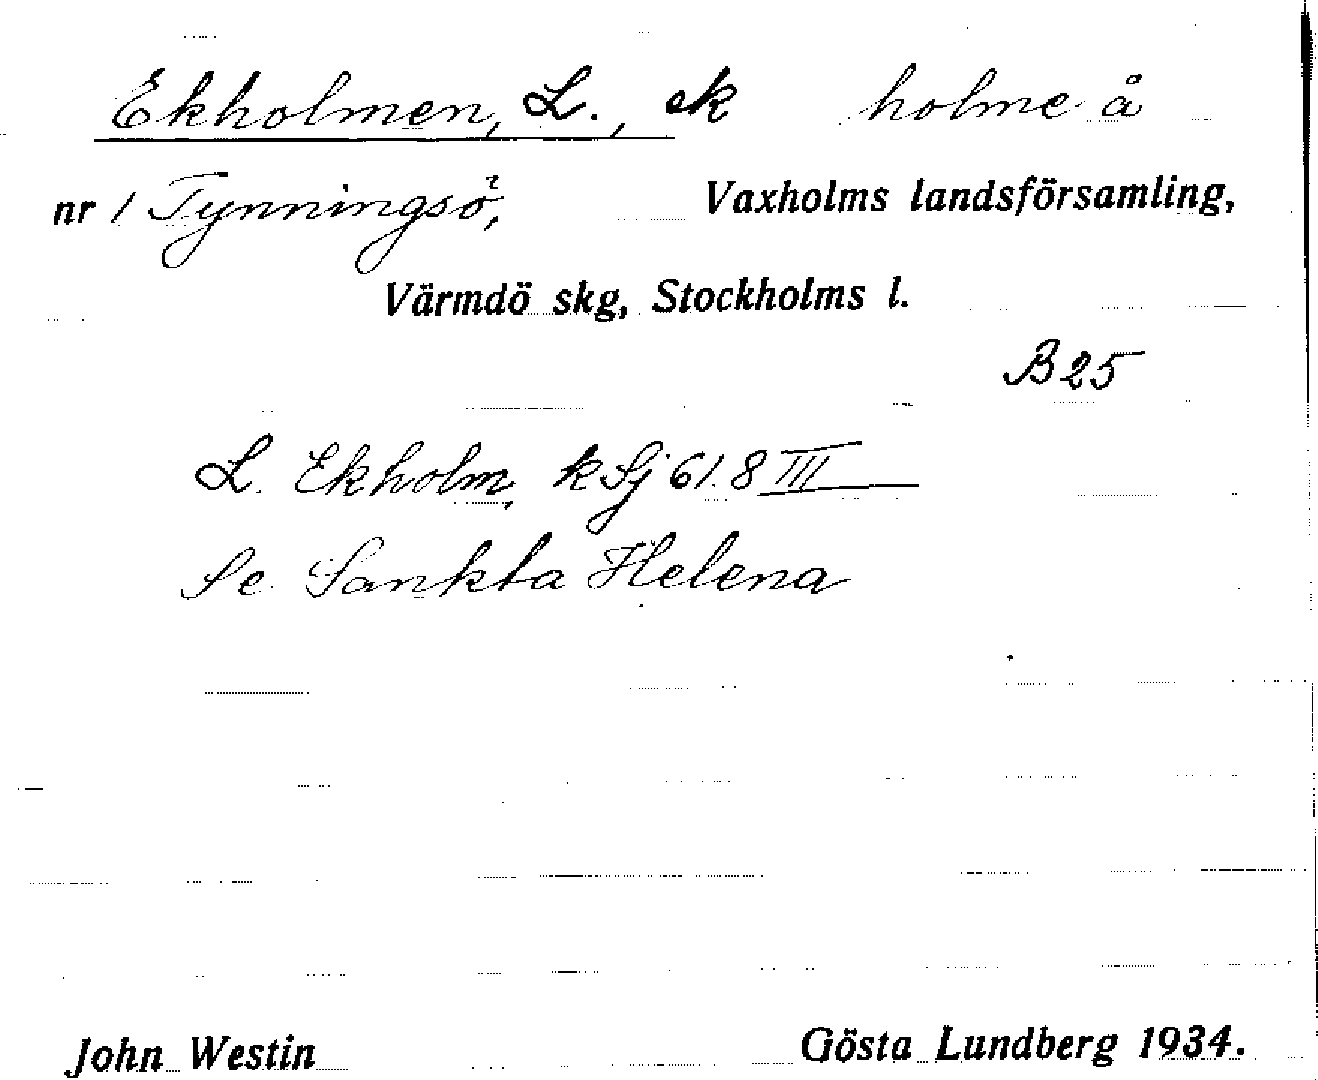 Ekholmen, L., ek holme å
nr 1 Tynningsö, Vaxholms landsförsamling,
Värmdö skg, Stockholms l.
B 25
L. Ekholm, k Sj 61.8 III
Se Sankta Helena
John Westin Gösta Lundberg 1934.